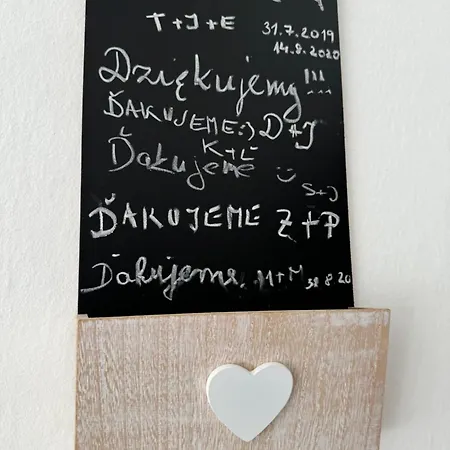 T+J+E
31.7.2019
14.8.2020
Dziękujemy !!!
ĎAKUJEME :) D+J
K+Ľ
Ďakujeme
S+J
ĎAKUJEME Z+P
Ďakujeme. M+M